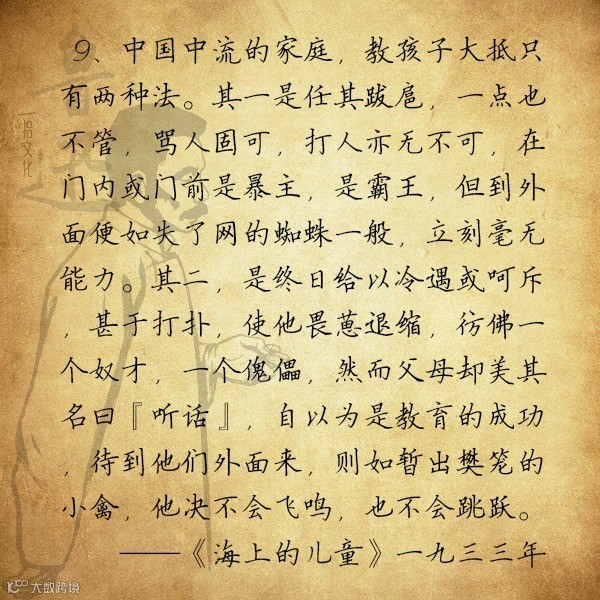 9、中国中流的家庭，教孩子大抵只
有两种法。其一是任其跋扈，一点也
不管，骂人固可，打人亦无不可，在
门内或门前是暴主，是霸王，但到外
面便如失了网的蜘蛛一般，立刻毫无
能力。其二，是终日给以冷遇或呵斥
，甚于打扑，使他畏葸退缩，彷佛一
个奴才，一个傀儡，然而父母却美其
名曰『听话』，自以为是教育的成功
，待到他们外面来，则如暂出樊笼的
小禽，他决不会飞鸣，也不会跳跃。
——《海上的儿童》一九三三年
拾文化
大数跨境